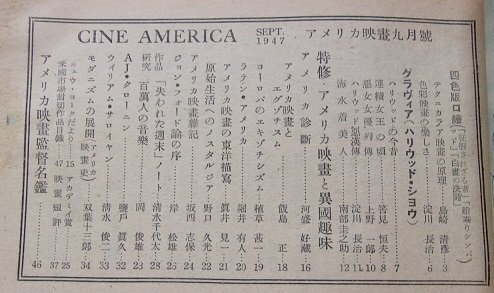 CINE AMERICA
SEPT. 1947
アメリカ映畫九月號
四色版口繪
テクニカラア映畫の原理 島崎清彦 3
色彩映畫の樂しさ 淀川長治 6
グラヴィア〈ハリウッド・ショウ〉
ハリウッドの今昔 7
連續女王の頃 筈見恒夫 8
惡女優列傳 上野一郎 10
ハリウッド惡漢傳 淀川長治 11
海水着美人 南部圭之助 12
特修 アメリカ映畫と異國趣味
アメリカ診斷 河盛好藏 16
アメリカ映畫とエグゾチスム 飯島正 18
ヨーロッパのエキゾチシズム 植草甚一 19
ラテン・アメリカ 堀井有人 20
アメリカ映畫の東洋描寫 眞井見一 21
原始生活へのノスタルジア 野口久光 22
アメリカ映畫雜記 坂西志保 24
ジョン・フォード論の序 岸松雄 26
作品研究 「失われた週末」ノート 清水千代太 28
百萬人の音樂
A・J・クローニン 岡俊雄 23
ウイリアム・サロイヤン 鹽戸眞久 32
清水俊二 33
モダニズムの展開〈アメリカ映畫史〉 双葉十三郎 34
ニュウ・ヨークだより 15
アカデミイ賞 25
米國市場封切作品目録 47
映畫短評 37
アメリカ映畫監督名鑑 46